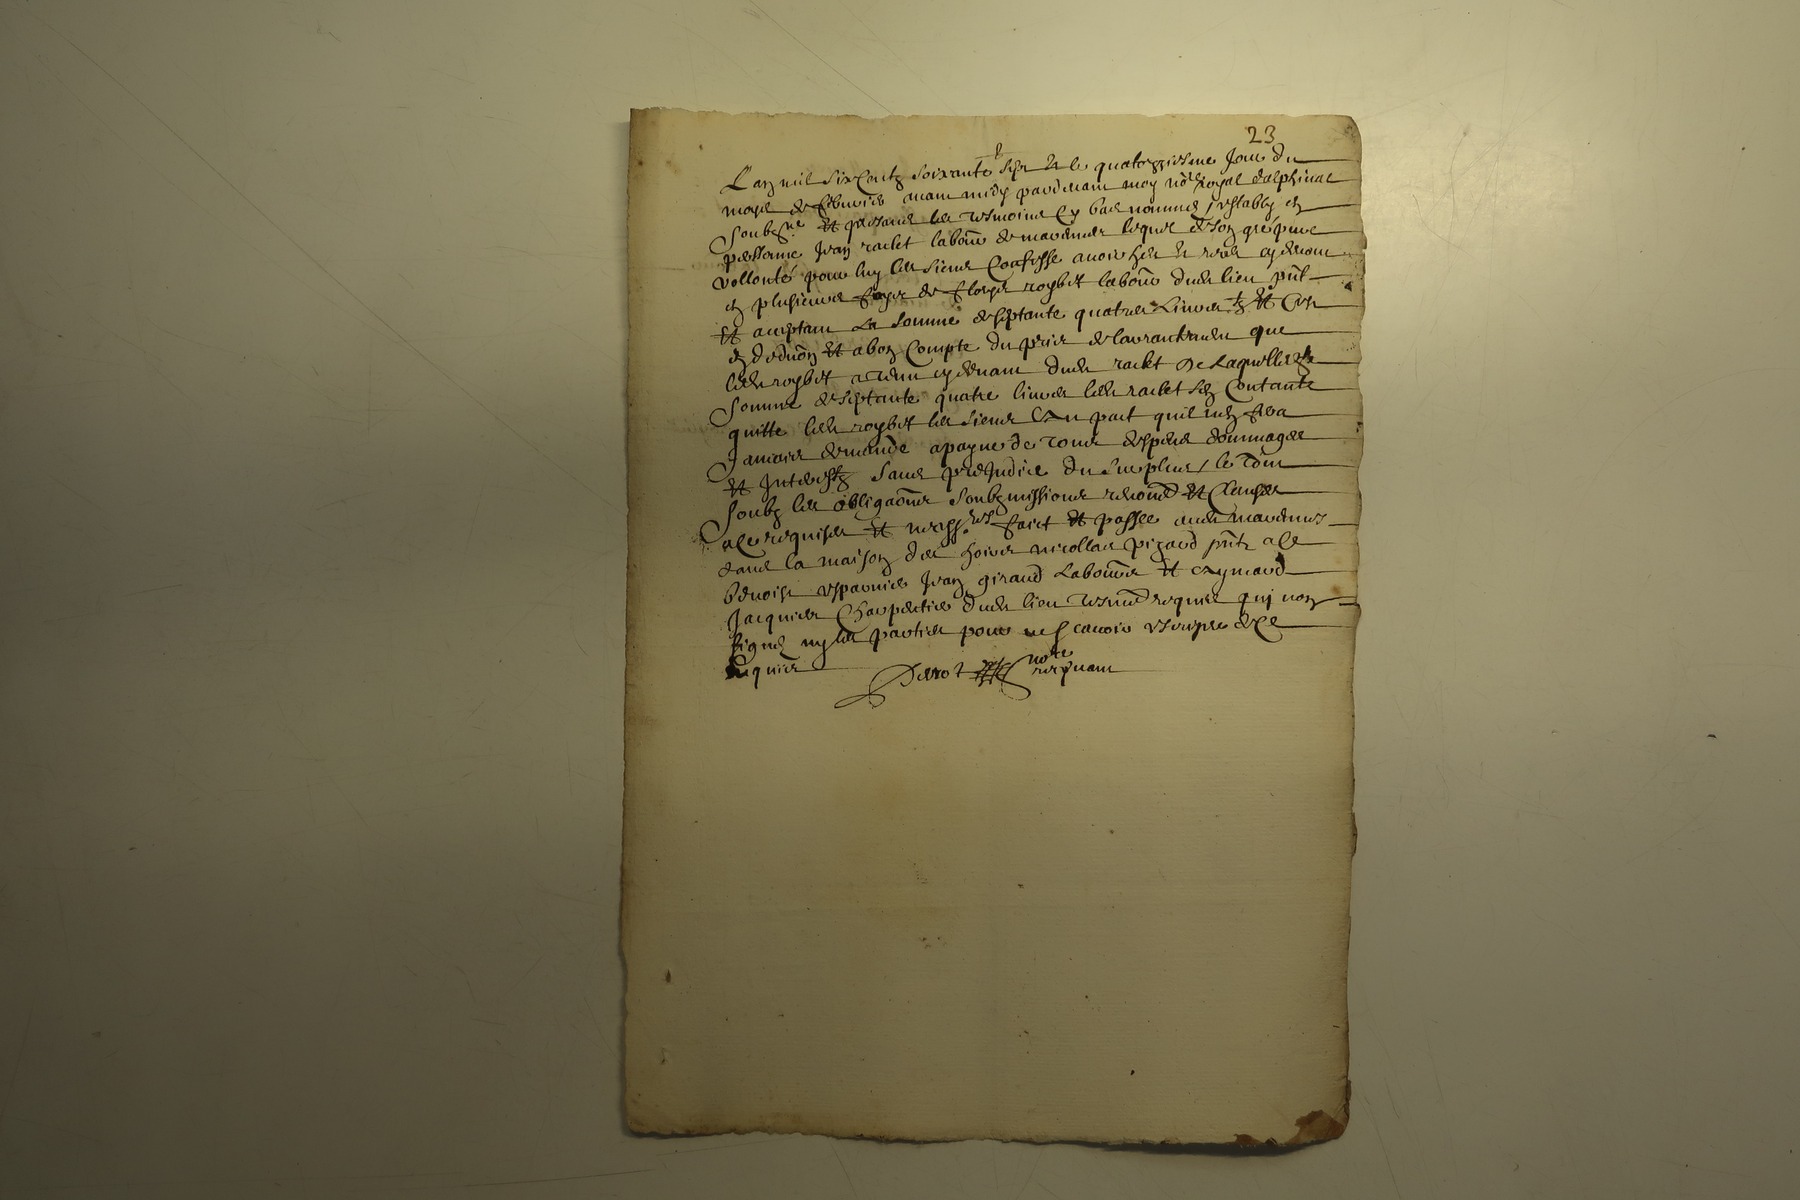 23
L'an mil six centz soixante sept et le quatorziesme jour du
moys de febvrier avant midy pardevant moy no.re royal dalphinal
soubz.né et presans les tesmoins cy bas nommes estably en
personne Jean raclet labour demarennes lequel de son gré pure
vollonté pour luy les siens Confesse avoir heu et receu cy devant
en plusieurs foyes de roybet labour dudit lieu p.nt
et acceptant la somme de septante quatre Livres et Ce
en deduon et a bon Compte du prix que
ledit roybet a cy devant dudit raclet De Laquelle
somme de septante quatre livres ledit raclet sen Contante
quitte ledit roybet les siens Et Un pact quil nen fera
Jamais demande a payne de tous despens dommages
et Interestz sans preJudice du surplus / le tout
soubz les obligaons soubzmissions renond et Clauses
a ce requises et Faict et passé audit marennes
dans la maison des hoirs nicollas pigard p.nts a ce
benoist Jean giraud Labour et Eymard
Jacquier Charpentier dudit lieu tesmoins requis qui non
signez ny les parties pour ne scavoir de ce
Requis
no.re
recepvant